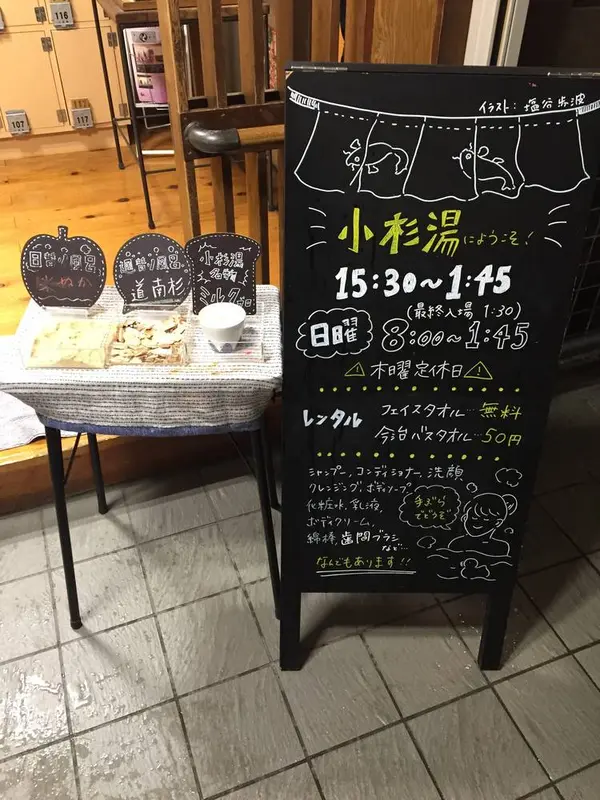 116
107
117
イラスト：塩谷歩波
小杉湯にようこそ！
15:30〜1:45
（最終入場 1:30）
日曜 8:00〜1:45
木曜定休日
レンタル フェイスタオル…無料
今治バスタオル…50円
シャンプー、コンディショナー、洗顔
クレンジング、ボディソープ
化粧水、乳液、
ボディクリーム、
綿棒、歯間ブラシ
など…
なんでもあります!!
手ぶら
でどうぞ
日替り風呂
道南杉
小杉湯
名物
ミルク